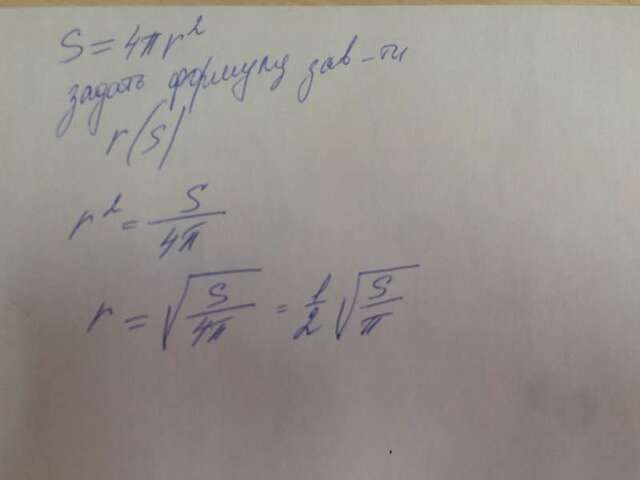 S = 4πr²
задать формулу зав-ти
r(S)
r² = S/4π
r = √(S/4π) = 1/2 √(S/π)